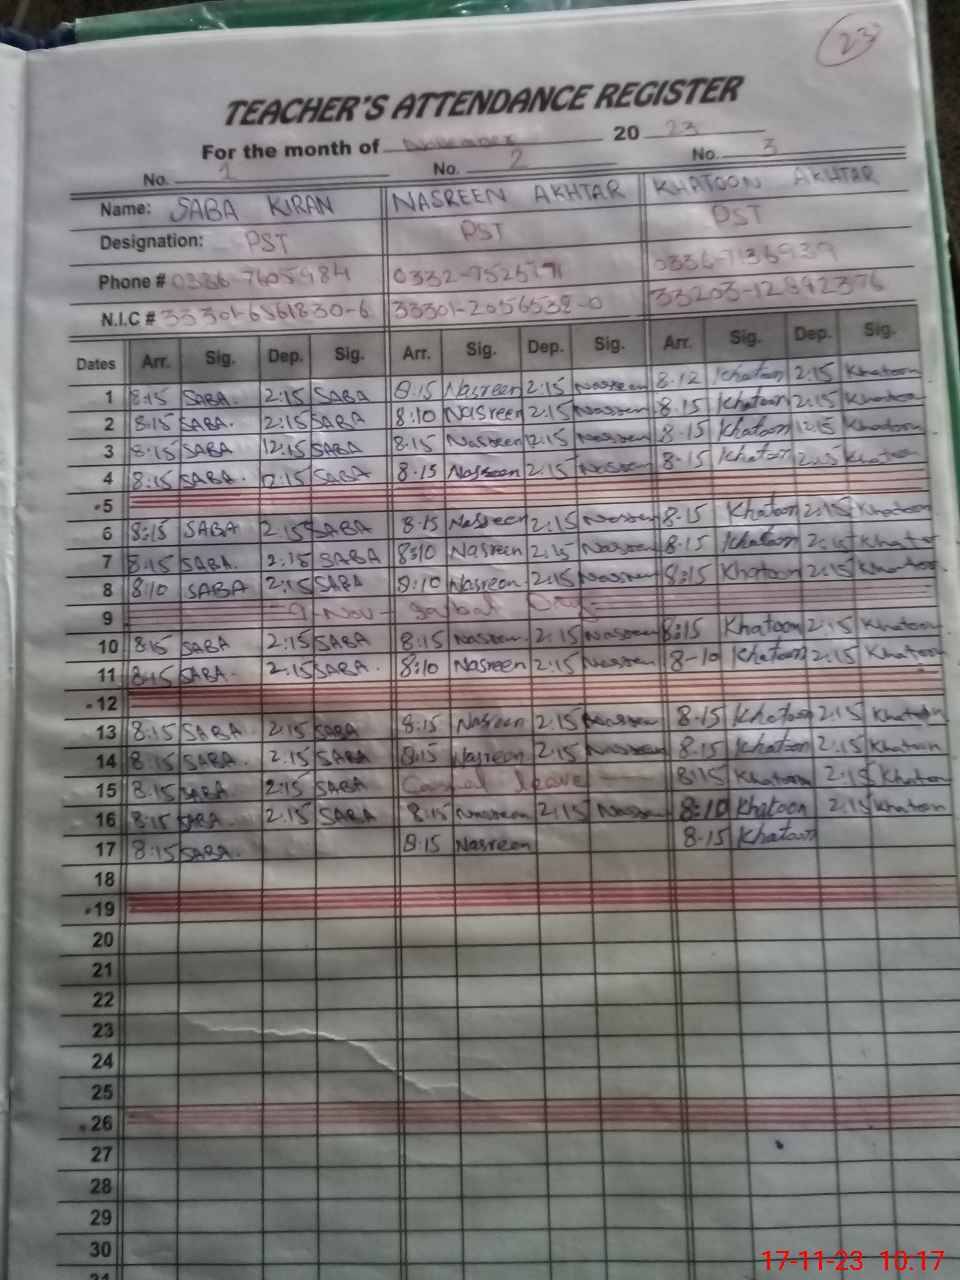 23
TEACHER'S ATTENDANCE REGISTER
For the month of November 20 23
No. 1 No. 2 No. 3
Name: SABA KIRAN NASREEN AKHTAR KHATOON AKHTAR
Designation: PST PST PST
Phone #
N.I.C #
Dates Arr. Sig. Dep. Sig. Arr. Sig. Dep. Sig. Arr. Sig. Dep. Sig.
1 8:15 SABA. 2:15 SABA 8:15 Nasreen 2:15 Nasreen 8-12 Khatoon 2:15 Khatoon
2 8:15 SABA. 2:15 SABA 8:10 Nasreen 2:15 Nasreen 8-15 Khatoon 2:15 Khatoon
3 8:15 SABA. 12:15 SABA 8:15 Nasreen 12:15 Nasreen 8-15 Khatoon 12:15 Khatoon
4 8:15 SABA. 2:15 SABA 8:15 Nasreen 2:15 Nasreen 8-15 Khatoon Khatoon
5
6 8:15 SABA 2:15 SABA 8:15 Nasreen 2:15 Nasreen 8-15 Khatoon 2:15 Khatoon
7 8:15 SABA. 2:15 SABA 8:10 Nasreen 2:15 Nasreen 8-15 Khatoon 2:15 Khatoon
8 8:10 SABA 2:15 SABA 8:10 Nasreen 2:15 Nasreen 8:15 Khatoon 2:15 Khatoon
9 9-Nov- Iqbal Day
10 8:15 SABA 2:15 SABA 8:15 Nasreen 2:15 Nasreen 8:15 Khatoon 2:15 Khatoon
11 8:15 SABA. 2:15 SABA. 8:10 Nasreen 2:15 Nasreen 8-10 Khatoon 2:15 Khatoon
12
13 8:15 SABA 2:15 SABA 8:15 Nasreen 2:15 Nasreen 8-15 Khatoon 2:15 Khatoon
14 8:15 SABA. 2:15 SABA 8:15 Nasreen 2:15 Nasreen 8-15 Khatoon 2:15 Khatoon
15 8:15 SABA 2:15 SABA Casual leave 8:15 Khatoon 2:15 Khatoon
16 8:15 SABA. 2:15 SABA 8:15 Nasreen 2:15 Nasreen 8:10 Khatoon 2:15 Khatoon
17 8:15 SABA. 8:15 Nasreen 8-15 Khatoon
18
19
20
21
22
23
24
25
26
27
28
29
30
31
17-11-23 10.17